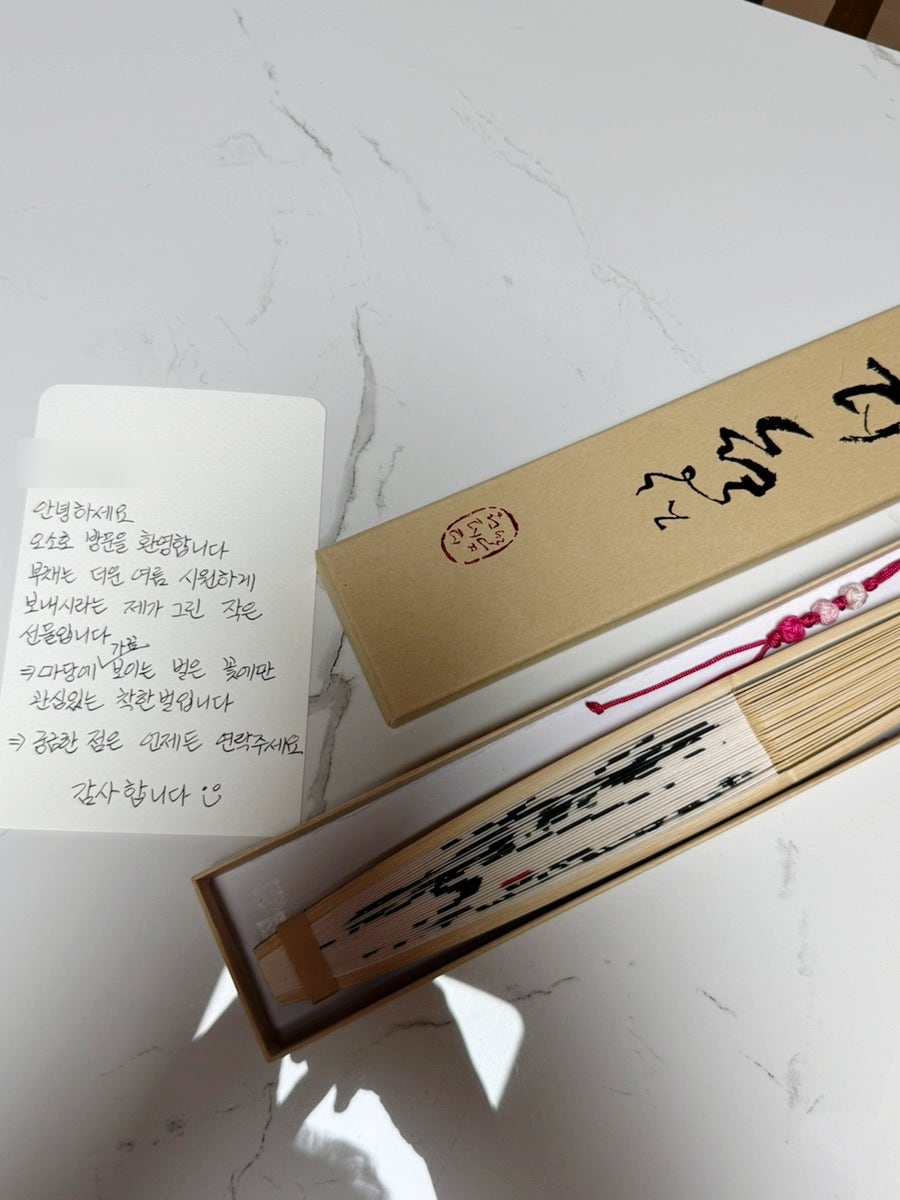 안녕하세요
오소호 방문을 환영합니다
부채는 더운 여름 시원하게
보내시라는 제가 그린 작은
선물입니다
⇒ 마당에 가끔 보이는 벌은 꽃에만
관심있는 착한벌입니다
⇒ 궁금한 점은 언제든 연락주세요
감사합니다 :)